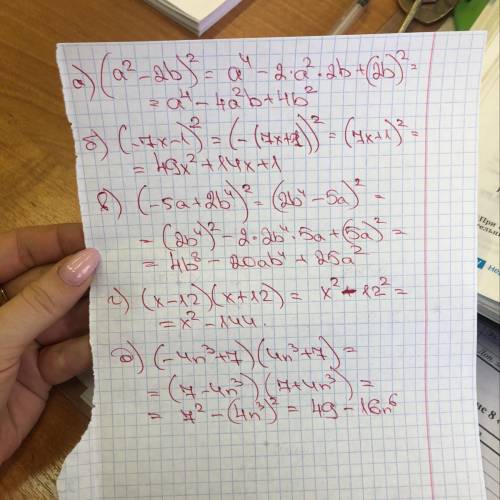 а) (a² - 2b)² = a⁴ - 2·a²·2b + (2b)² =
= a⁴ - 4a²b + 4b²
б) (-7x-1)² = (-(7x+1))² = (7x+1)² =
= 49x² + 14x + 1
в) (-5a+2b⁴)² = (2b⁴-5a)² =
= (2b⁴)² - 2·2b⁴·5a + (5a)² =
= 4b⁸ - 20ab⁴ + 25a²
г) (x-12)(x+12) = x² - 12² =
= x² - 144.
д) (-4n³+7)(4n³+7) =
= (7-4n³)(7+4n³) =
= 7² - (4n³)² = 49 - 16n⁶
При